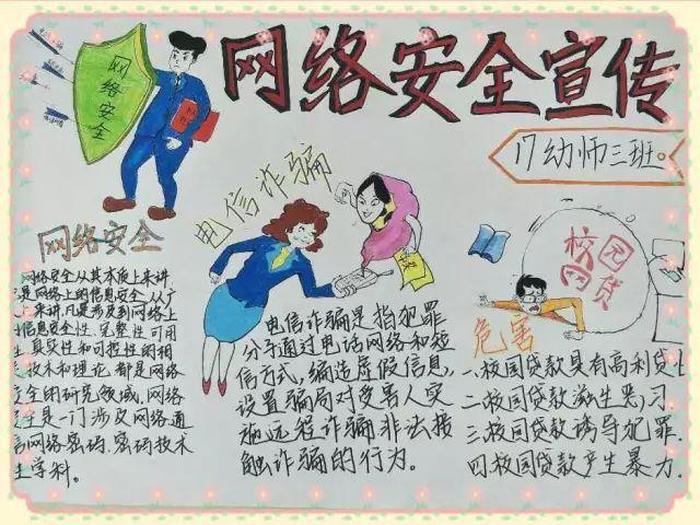 网络安全宣传
17幼师三班。
网络安全
电信诈骗
校园
网贷
网络安全
网络安全从其本质上来讲
是网络上的信息安全,从广
来讲,凡是涉及到网络上
信息安全性、完整性、可用
真实性和可控性的相
技术和理论,都是网络
全的研究领域.网络
全是一门涉及网络通
信网络密码.密码技术
学科。
电信诈骗是指犯罪
分子通过电话网络和短
信方式,编造虚假信息,
设置骗局对受害人实
施远程诈骗非法接
触诈骗的行为。
危害
一.校园贷款具有高利贷
二校园贷款滋生恶习.
三.校园贷款诱导犯罪.
四.校园贷款产生暴力.